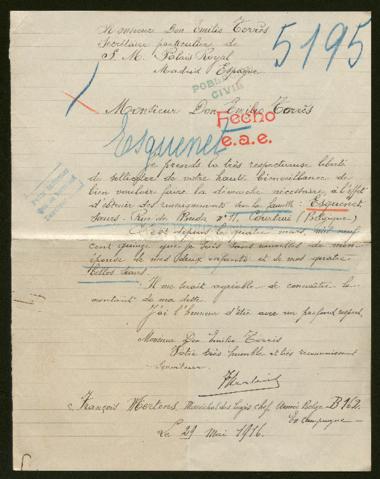 Monsieur Don Emilio Torrès
Secrétaire particulier de
S. M. Palais Royal
Madrid Espagne
5195
POBL
CIVIL
Monsieur Don Emilio Torrès
Fecho
e.a.e.
Esquenet
Je prends la très respectueuse liberté
de solliciter de votre haute bienveillance de
bien vouloir faire la démarche nécessaire à l'effet
d'obtenir des renseignements sur la famille: Esquenet
Sœurs - Rue de Buda n° 11, Courtrai (Belgique)
C'est depuis le quatre mars, mil neuf
cent quinze que je suis sans nouvelles de mon
épouse et mes deux enfants et de mes quatre
belles sœurs.
Il me serait agréable de connaître le
montant de ma dette.
J'ai l'honneur d'être avec un profond respect,
Monsieur Don Emilio Torrès
Votre très humble et très reconnaissant
Serviteur.
FMertens
François Mertens, Maréchal des logis chef Armée Belge B 162
En campagne
Le 29 Mai 1916.